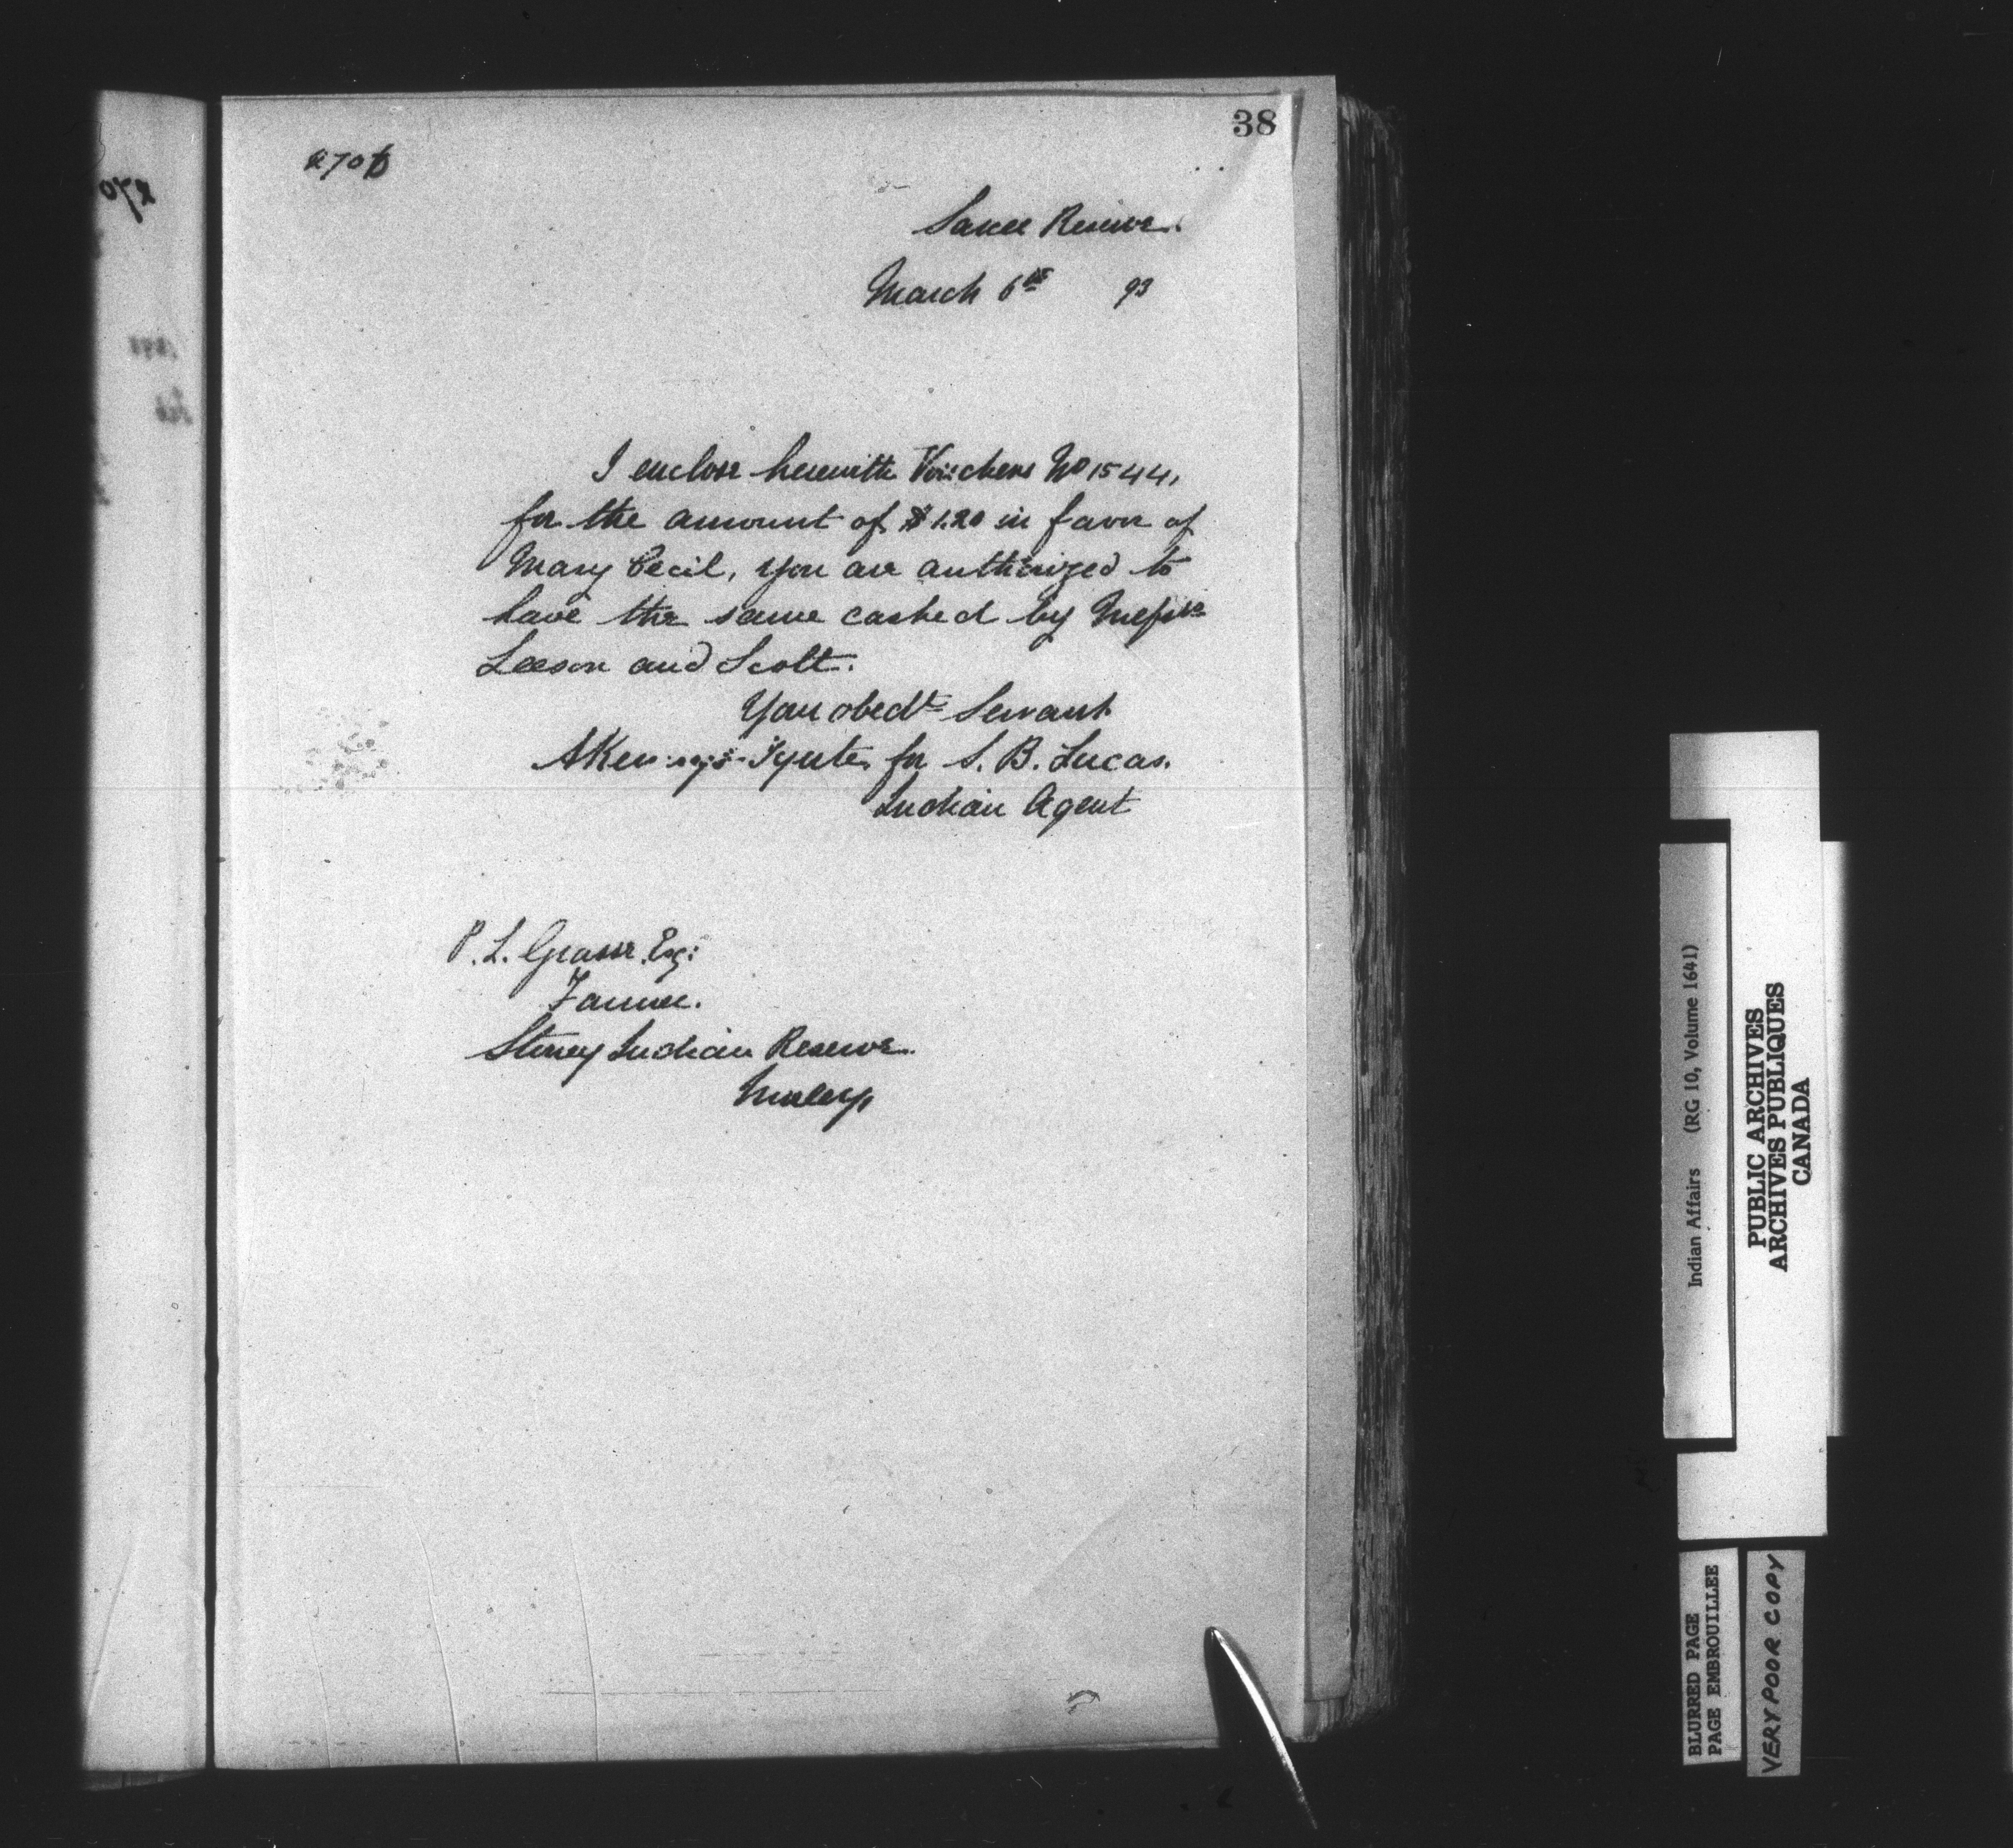 38
270
Sarcee Reserve.
March 6th 93
I enclose herewith Vouchers No 1544,
for the amount of $1.20 in favor of
Mary Cecil, you are authorized to
have the same cashed by Messrs
Leeson and Scott.
Your obedt Servant
for S. B. Lucas.
Indian Agent
P. L. Grasse Esq:
Farmer.
Stoney Indian Reserve.
Morley
Indian Affairs (RG 10, Volume 1641)
PUBLIC ARCHIVES
ARCHIVES PUBLIQUES
CANADA
BLURRED PAGE
PAGE EMBROUILLEE
VERY POOR COPY